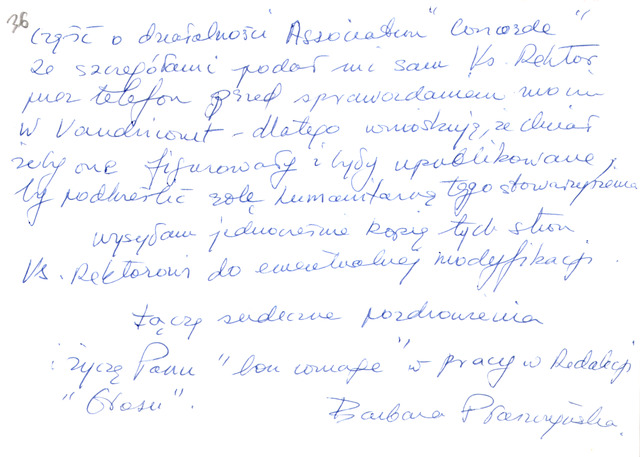 36
część o działalności Association "Concorde"
ze szczegółami podał mi sam Ks. Rektor
przez telefon przed sprawozdaniem moim
w Vaudricourt - dlatego wnioskuję, że chciał
żeby one figurowały i były upublikowane,
by podkreślić rolę humanitarną tego stowarzyszenia
wysyłam jednocześnie kopię tych stron
Ks. Rektorowi do ewentualnej modyfikacji.
Łączę serdeczne pozdrowienia
i życzę Panu "bon courage" w pracy w Redakcji
"Głosu".
Barbara Płaszczyńska.